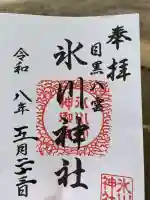 奉拝
目黒八雲
氷川神社
令和八年五月二十三日
氷川
神社